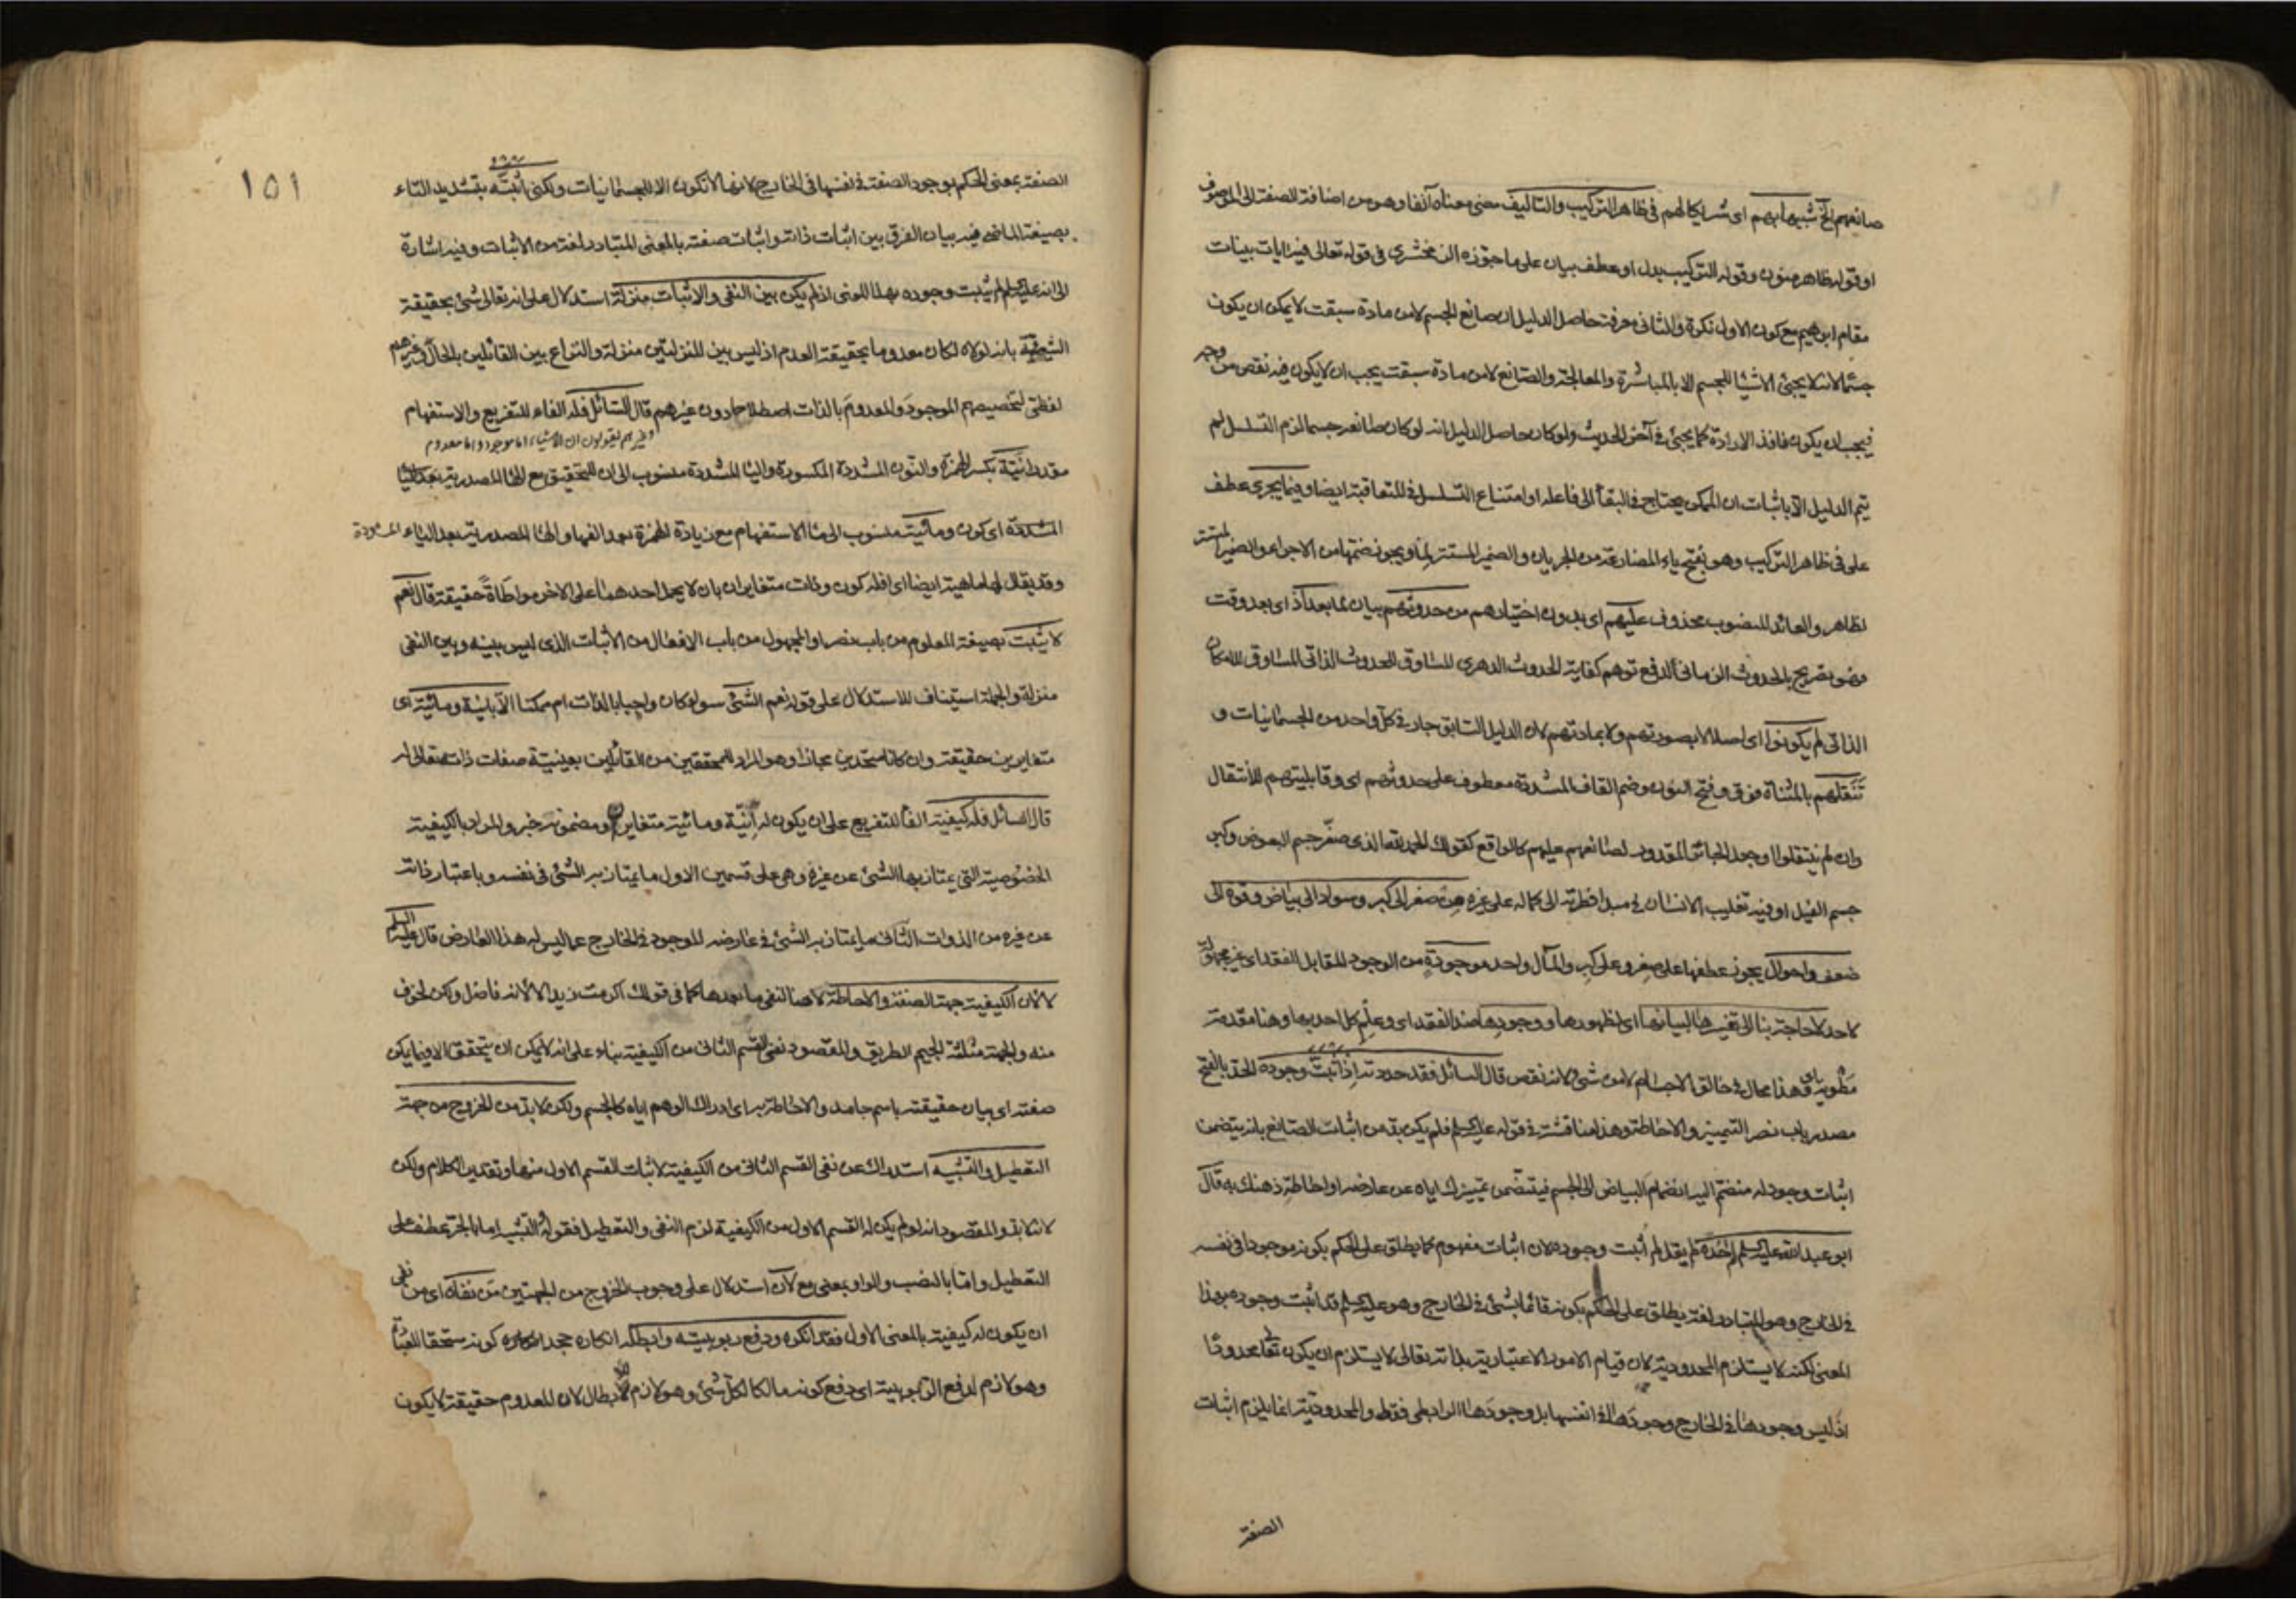 صانعهم الخ شبيها بهم اى شريكا لهم فى ظاهر التركيب والتاليف مضى معناه آنفا وهو من اضافة الصفة الى الموصوف
او قوله ظاهر منون وقوله التركيب بدل او عطف بيان على ما جوزه الزمخشرى فى قوله تعالى فيه ايات بينات
مقام ابرهيم مع كون الاول نكرة والثانى معرفة حاصل الدليل ان صانع الجسم لا من مادة سبقت لا يمكن ان يكون
جسما لانه لا يجئ الاشيا للجسم الا بالمباشرة والمعالجة والصانع لا من مادة سبقت يجب ان لا يكون فيه نقص من وجه
فيجب ان يكون نافذ الارادة كما يجئ فى آخر الحديث ولو كان حاصل الدليل انه لو كان صانعه جسما لزم التسلسل لم
يتم الدليل الا باثبات ان الممكن يحتاج فى البقأ الى فاعله او امتناع التسلسل فى المتعاقبة ايضا وفيما يجرى عطف
على فى ظاهر التركيب وهو بفتح ياء المضارعة من الجريان والضمير المستتر لما ويجوز ضمها من الاجراء والضمير المستتر
لظاهر والعائد المنصوب محذوف عليهم اى بدون اختيارهم من حدوثهم بيان لما بعد اذ اى بعد وقت
فهو تصريح بالحدوث الزمانى لدفع توهم كفاية الحدوث الدهرى المساوق للحدوث الذاتى المساوق للامكان
الذاتى لم يكونوا اى اصلا لا بصورتهم ولا بمادتهم لان الدليل السابق جار فى كل واحد من الجسمانيات و
تنقلهم بالمثناة فوق وفتح النون وضم القاف المشددة معطوف على حدوثهم اى وقابليتهم للانتقال
وان لم ينتقلوا وجعل الجائز المقدور لصانعهم عليهم كالواقع كقولك الحمد لله الذى صغر جسم البعوض وكبر
جسم الفيل او فيه تغليب الانسان فى مبدا فطرته الى كماله على غيره من صغر الى كبر وسواد الى بياض وقوة الى
ضعف واحوال يجوز عطفها على صغر وعلى كبر والمآل واحد موجودة من الوجود المقابل الفقد اى غير مجهولة
لاحد لا حاجة بنا الى تفسيرها لبيانها اى لظهورها ووجودها ضد الفقد اى وعلم كل احد بها وهنا مقدمة
مطوية وهذا محال فى خالق الاجسام لا من شئ لانه نقص قال السائل فقد حددته اذ اثبت وجوده الحد بالفتح
مصدر باب نصر التمييز والاحاطة وهذا مناقشة فى قوله عليه السلم فلم يكن بد من اثبات الصانع بانه يتضمن
اثبات وجود له منضم اليه انضمام البياض الى الجسم فيتضمن تمييزك اياه عن عارضه واحاطة ذهنك به قال
ابو عبد الله عليه السلم لم احده لم يقل لم اثبت وجوده لان اثبات مفهوم كما يطلق على الحكم بكونه موجودا فى نفسه
فى الخارج وهو المتبادر لغة يطلق على الحكم بكونه قائما بشئ فى الخارج وهو عليه السلم قد اثبت وجوده بهذا
المعنى لكنه لا يستلزم المحدودية لان قيام الامور الاعتبارية بذاته تعالى لا يستلزم ان يكون تعالى محدودا
اذ ليس وجودها فى الخارج وجودها فى انفسها بل وجودها الرابطى فقط والمحدودية انما يلزم اثبات
الصفة
١٥١
الصفة بمعنى الحكم بوجود الصفة فى نفسها فى الخارج لانها لا تكون الا للجسمانيات ولكنى اثبته بتشديد التاء
بصيغة الماضى فيه بيان الفرق بين اثبات ذاته واثبات صفته بالمعنى المتبادر لغة من الاثبات وفيه اشارة
الى انه عليه السلم لم يثبت وجوده بهذا المعنى اذ لم يكن بين النفى والاثبات منزلة استدلال على انه تعالى شئ بحقيقة
الشيئية بانه لولاه لكان معدوما بحقيقة العدم اذ ليس بين المنزلتين منزلة والنزاع بين القائلين بالحال وغيرهم
لفظى لتخصيصهم الموجود والمعدوم بالذات اصطلاحا دون غيرهم قال السائل فله الفاء للتفريع والاستفهام
وغيرهم يقولون ان الاشياء اما موجود واما معدوم
مقدر انية بكسر الهمزة والنون المشددة المكسورة واليا المشددة منسوب الى ان للتحقيق مع الها المصدرية بعد اليا
المشددة اى كون ومائية منسوب الى ما الاستفهام مع زيادة الهمزة بعد الفها والها المصدرية بعد الياء المشددة
وقد يقال لها ماهية ايضا اى افله كون وذات متغايران بان لا يحمل احدهما على الاخر مواطاة حقيقة قال نعم
لا يثبت بصيغة المعلوم من باب نصر او المجهول من باب الافعال من الاثبات الذى ليس بينه وبين النفى
منزلة والجملة استيناف للاستدلال على قوله نعم الشئ سواء كان واجبا بالذات ام ممكنا الا بانية ومائية اى
متغايرين حقيقة وان كانا متحدين مجازا وهو المراد للمحققين من القائلين بعينية صفات ذاته تعالى له
قال السائل فله كيفية الفا للتفريع على ان يكون له انية ومائية متغايرين ومضمونه خبر والمراد بالكيفية
الخصوصية التى يمتاز بها الشئ عن غيره وهى على قسمين الاول ما يمتاز به الشئ فى نفسه وباعتبار ذاته
عن غيره من الذوات الثانى ما يمتاز به الشئ فى عارضه الموجود فى الخارج عما ليس له هذا العارض قال عليه السلم
لا لان الكيفية جهة الصفة والاحاطة لا هنا لنفى ما بعدها كما فى قولك اكرمت زيدا لا لانه فاضل ولكن لخوف
منه والجهة مثلثة الجيم الطريق والمقصود نفى القسم الثانى من الكيفية بناء على انه لا يمكن ان يتحقق الا فيما يمكن
صفته اى بيان حقيقته باسم جامد والاحاطة به اى ادراك الوهم اياه كالجسم ولكن لا بد من الخروج من جهة
التعطيل والتشبيه استدراك عن نفى القسم الثانى من الكيفية لاثبات القسم الاول منها وتقدير الكلام ولكن
لانه لا بد والمقصود انه لو لم يكن له القسم الاول من الكيفية لزم النفى والتعطيل فقوله والتشبيه اما بالجر عطف على
التعطيل واما بالنصب والواو بمعنى مع لان استدلال على وجوب الخروج من الجهتين من نفاه اى من نفى
ان يكون له كيفية بالمعنى الاول فقد انكره ودفع ربوبيته وابطله انكاره جحد كونه مستحقا للعبادة
وهو لازم لدفع الربوبية اى دفع كونه مالكا لكل شئ وهو لازم للابطال لان المعدوم حقيقة لا يكون